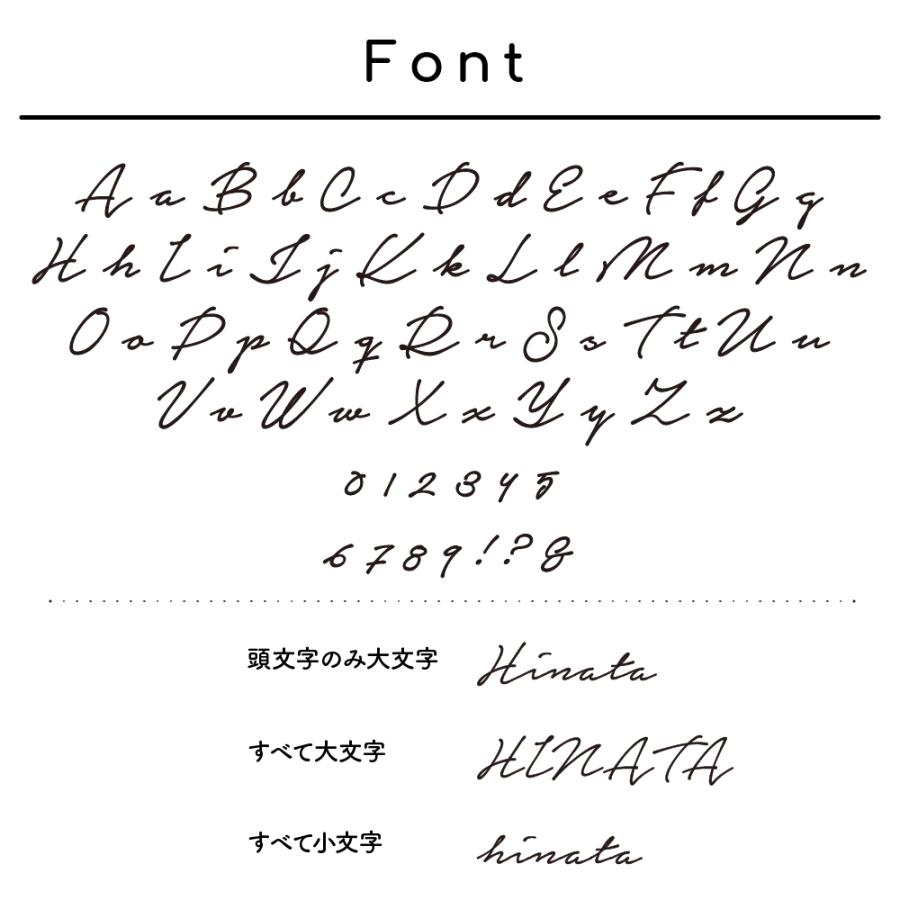 Font
A a B b C c D d E e F f G g
H h I i J j K k L l M m N n
O o P p Q q R r S s T t U u
V v W w X x Y y Z z
0 1 2 3 4 5
6 7 8 9 ! ? &
頭文字のみ大文字 Hinata
すべて大文字 HINATA
すべて小文字 hinata